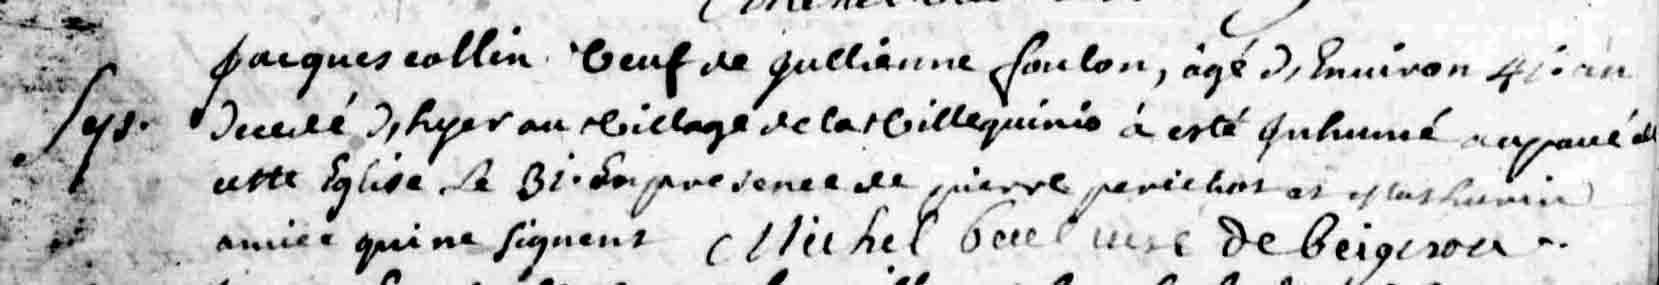 Jacques collin veuf de Jullienne foulon, âgé d'Environ 41. an
Sep. Decedé d'hyer au village de la villequinio à esté Inhumé au pavé de
cette Eglise Le 31. En presence de pierre perichot et Mathurin
amice qui ne signent Michel bouel curé de beignon